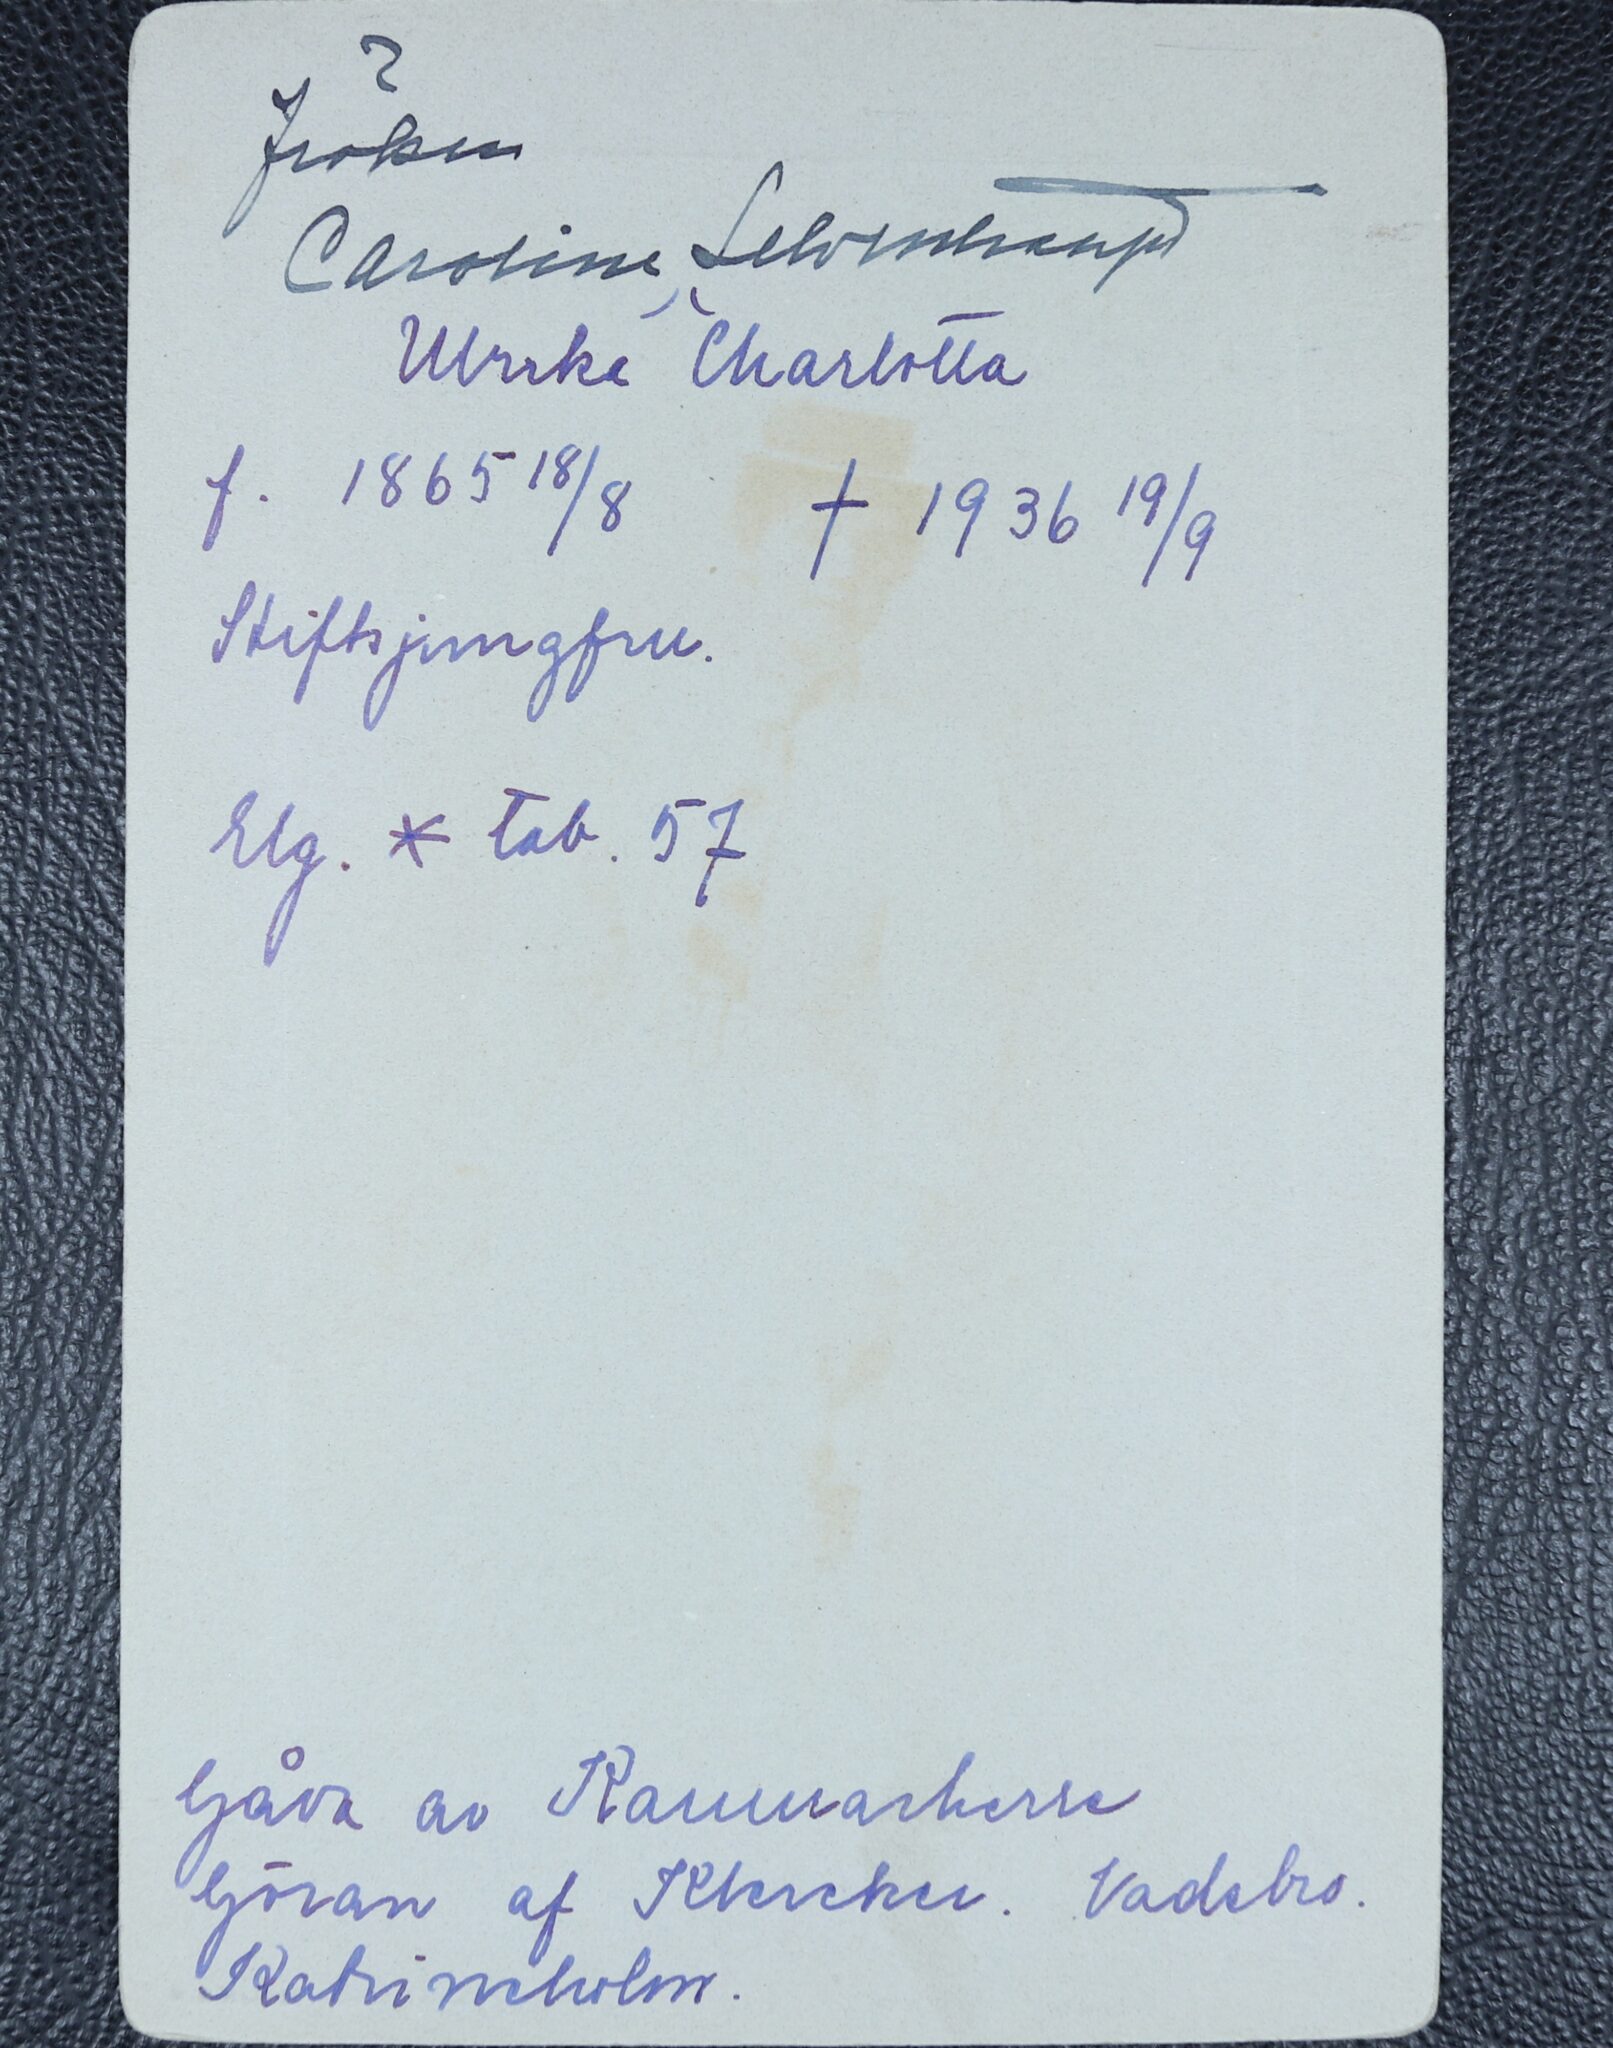 ?
Fröken
Caroline Lewenhaupt
Ulrika Charlotta
f. 1865 18/8 † 1936 19/9
Stiftsjungfru.
Elg. * tab. 57
Gåva av Kammarherre
Göran af Klercker. Vadsbro.
Katrineholm.